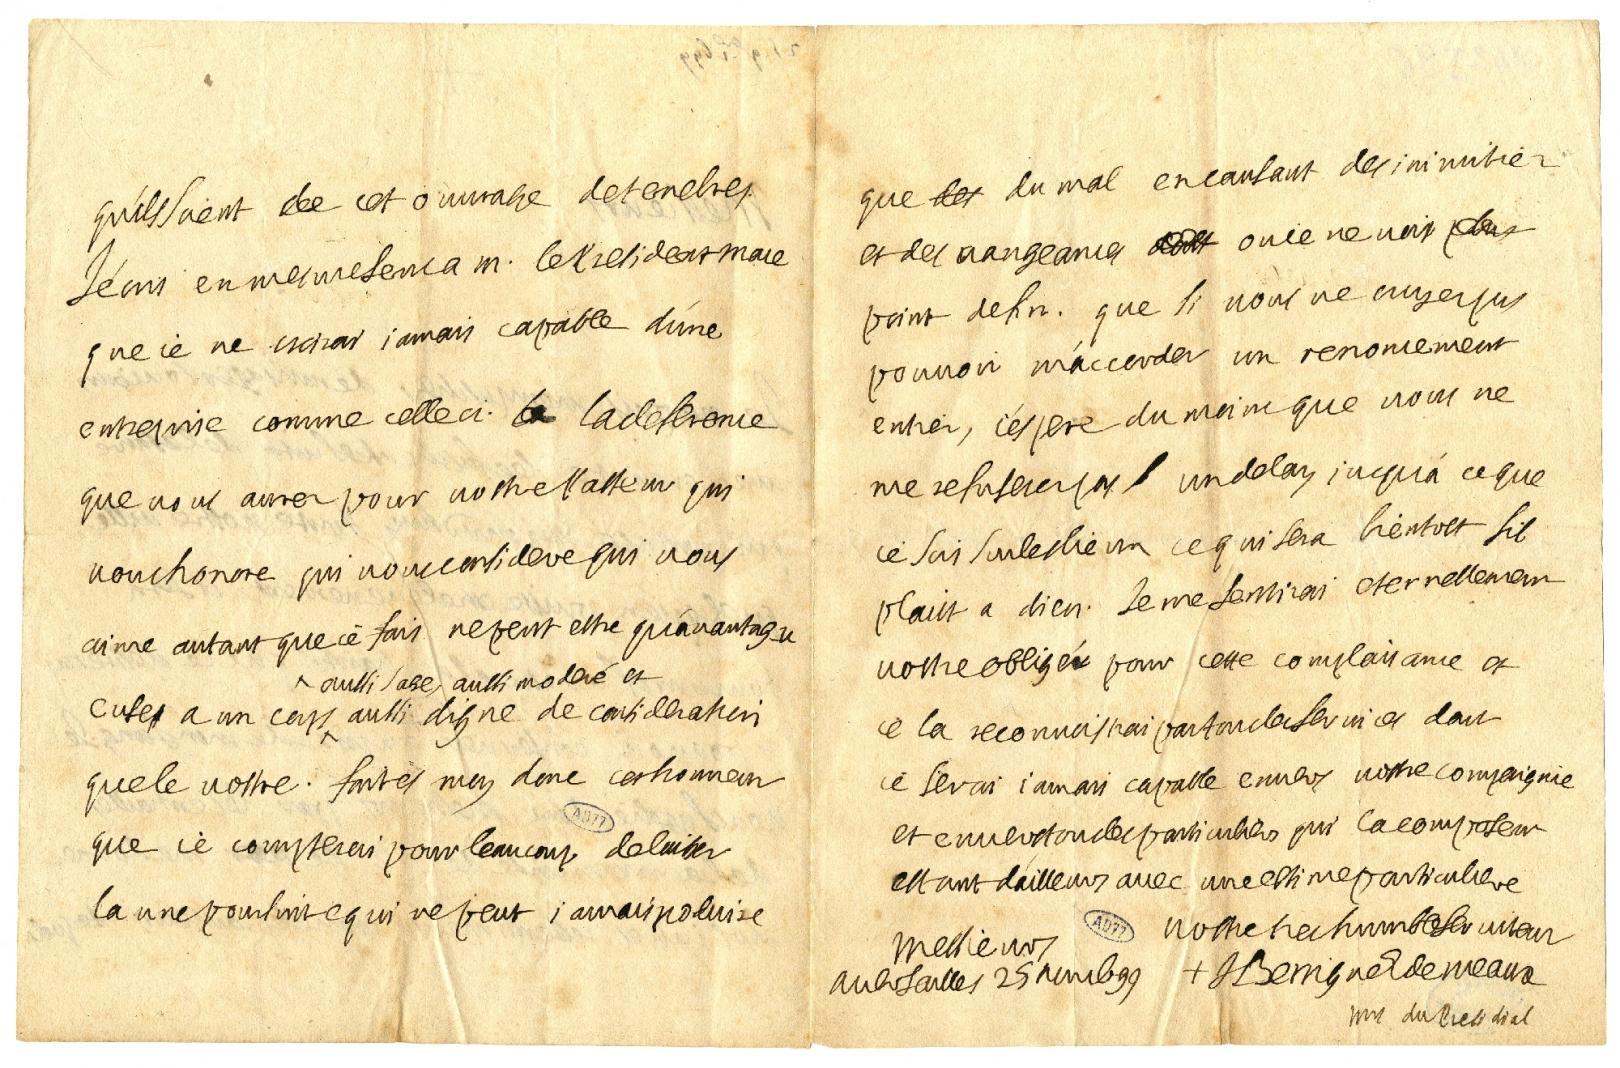 qu'ils soient de cet ouvrage de tenebres
J'écris en mesme sens a m. le President mace
que ie ne croirai iamais capable d'une
entreprise comme celle ci. la la deference
que vous aurez pour vostre Pasteur qui
vous honore qui vous considere qui vous
aime autant que ie fais ne peut estre qu'avantageu
^ aussi sage, aussi moderé et
a un corps aussi digne de consideration
que le vostre. faites moy donc cet honneur
que ie compterai pour beaucoup de laisser
la une poursuite qui ne peut iamais produire
que des du mal en causant des inimitiez
et des vangeances dont ou ie ne vois plus
point de fin. que si vous ne croyez pas
pouvoir m'accorder un renoncement
entier, i'espere du moins que vous ne
me refuserez pas un delay iusqu'a ce que
ie sois sur les lieux ce qui sera bientost s'il
plaist a dieu. Je me sentirai eternellement
vostre obligé pour cette complaisance et
ie la reconnoistrai par tous les services dont
ie serai iamais capable envers vostre compaignie
et envers tous les particuliers qui la composent
estant d'ailleurs avec une estime particuliere
Messieurs
vostre tres humble serviteur
a versailles 25 novemb. 99
+ J Benigne E. de meaux
mrs du Presidial
AD77
AD77